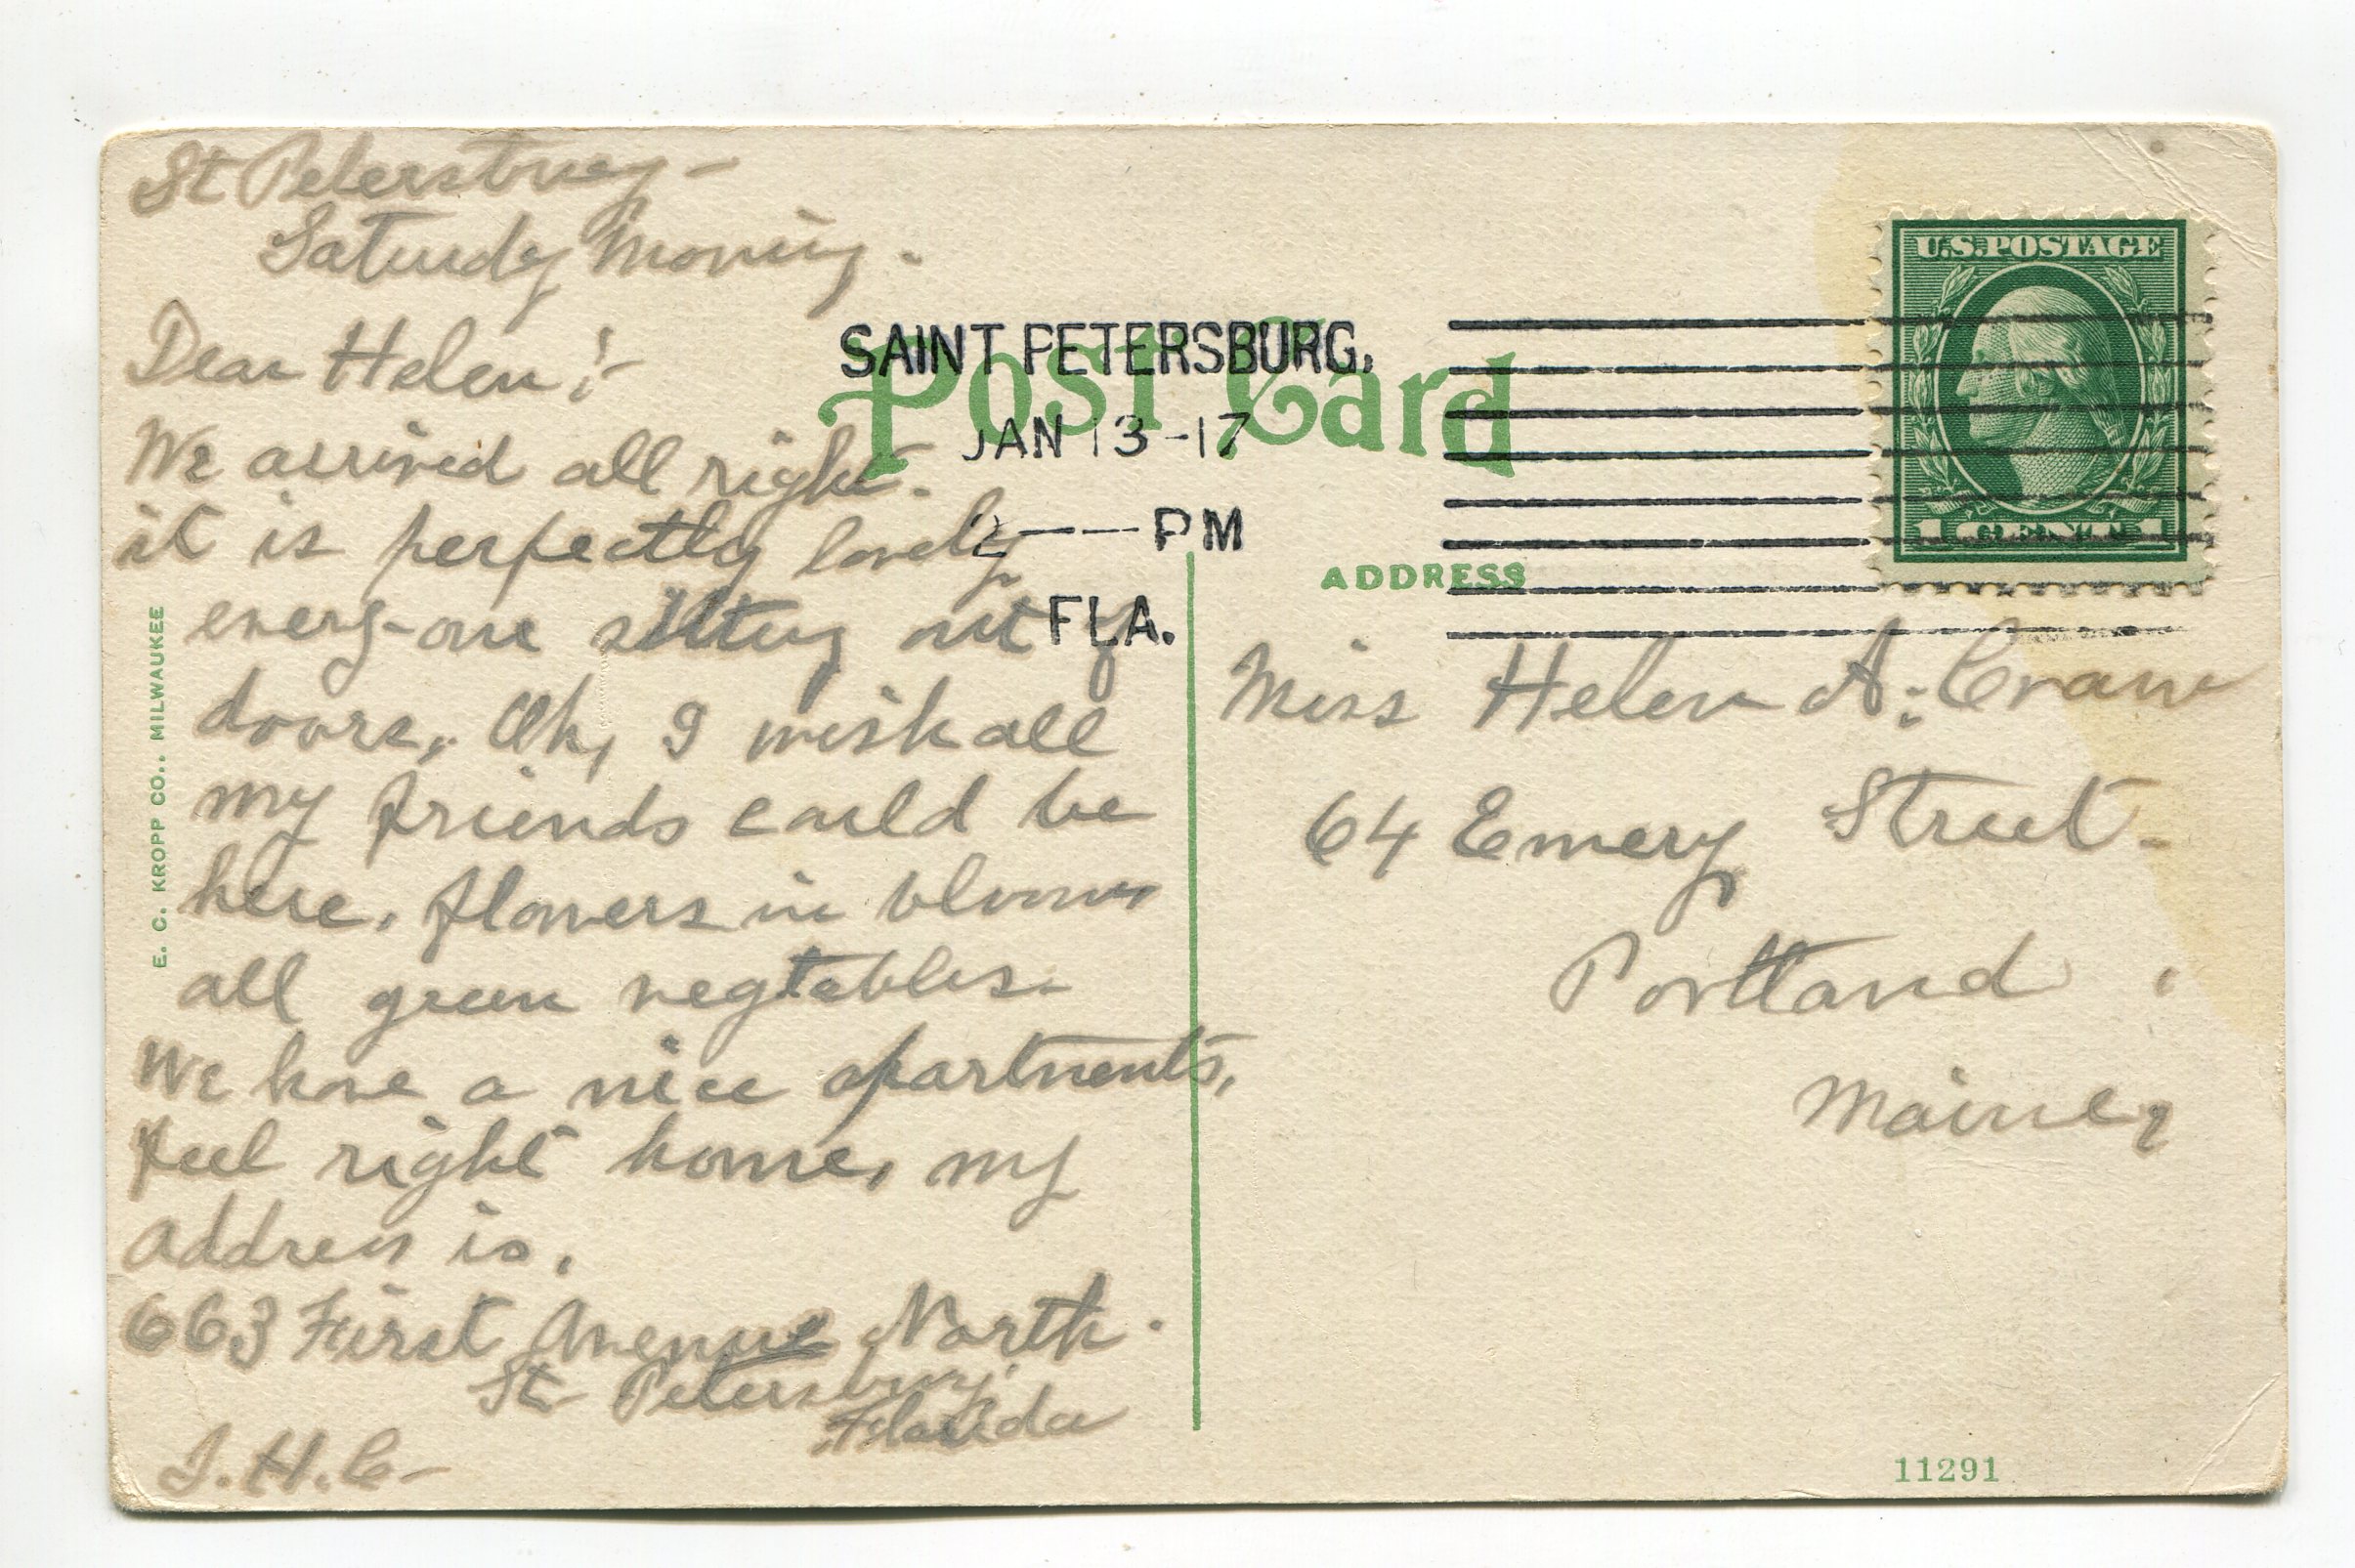 St Petersburg -
Saturdy Morning.
Dear Helen :-
We arrived all right.
it is perfectly lovely
every-one sitting out of
doors, Oh, I wish all
my friends could be
here, flowers in bloom
all green vegtables.
We have a nice apartments,
feel right home, my
address is,
663 First Avenue North.
St Petersburg,
Florida
H.C-
E. C. KROPP CO., MILWAUKEE
Post Card
SAINT PETERSBURG,
JAN 13-17
2--PM
FLA.
U.S. POSTAGE
1 CENT 1
ADDRESS
Miss Helen A.
64 Emery Street-
Portland,
Maine,
11291